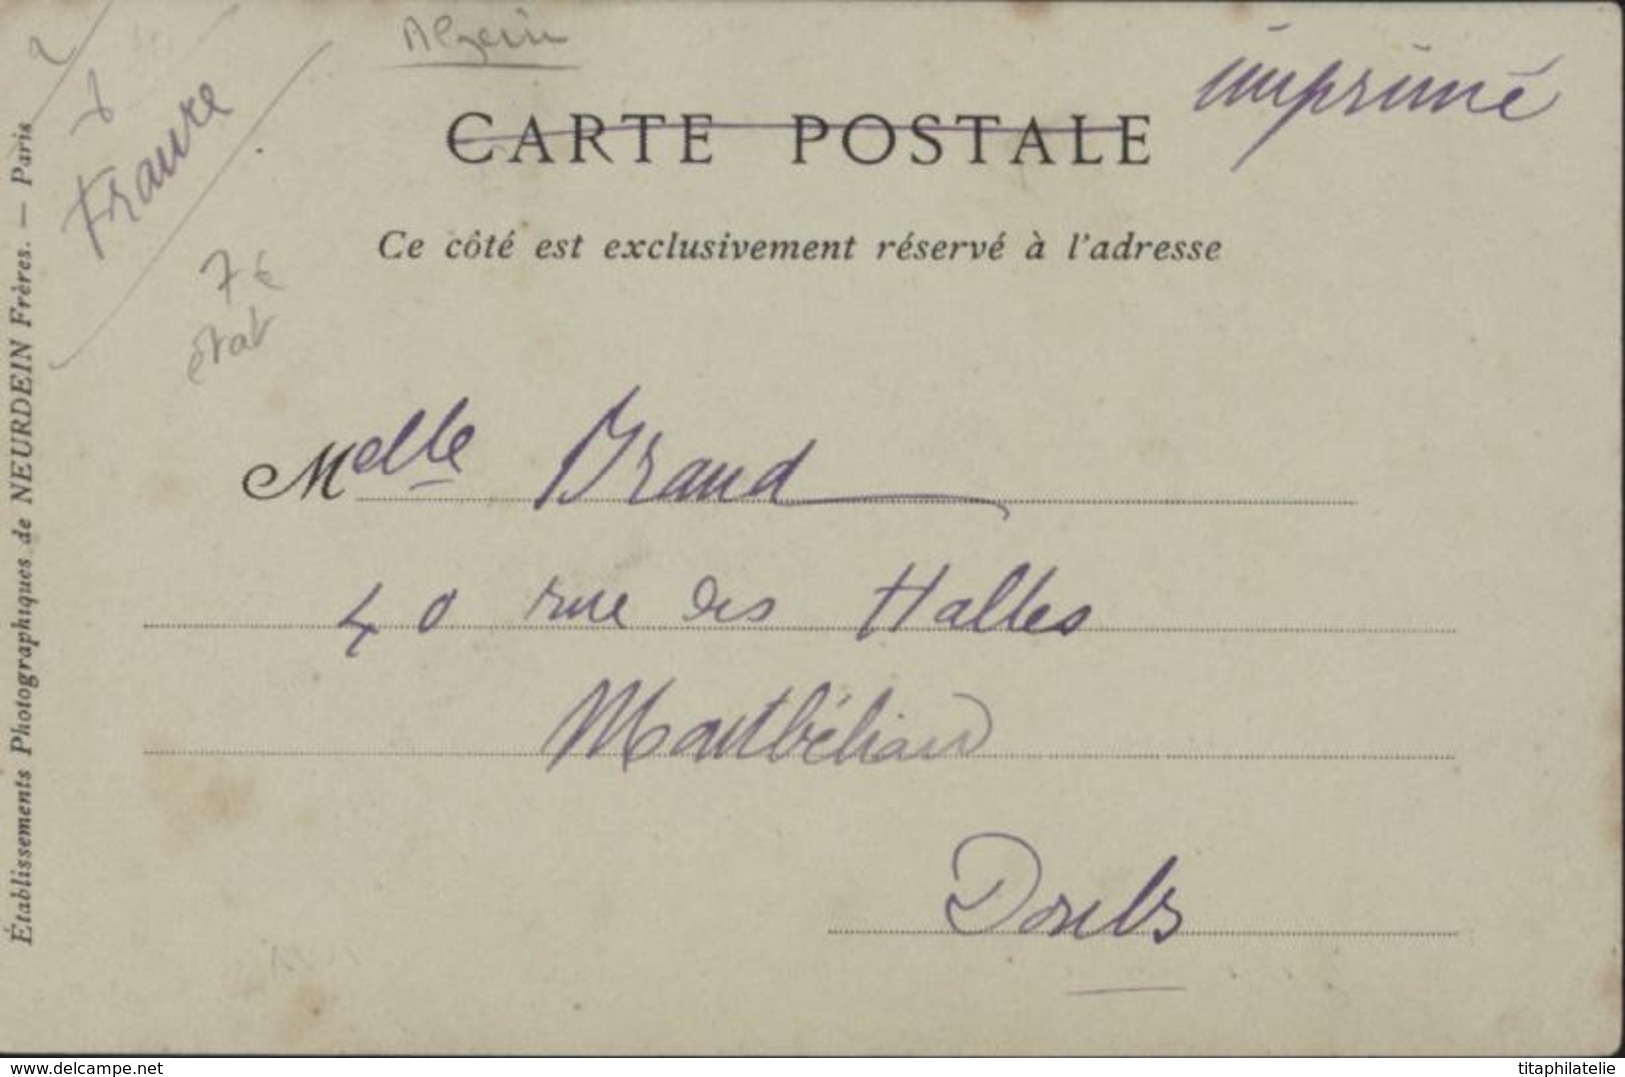 Algérie
imprimé
France
CARTE POSTALE
Ce côté est exclusivement réservé à l'adresse
7 €
état
Melle Braud
40 rue des Halles
Montbéliard
Doubs
Établissements Photographiques de NEURDEIN Frères. — Paris
delcampe.net
titaphilatelie